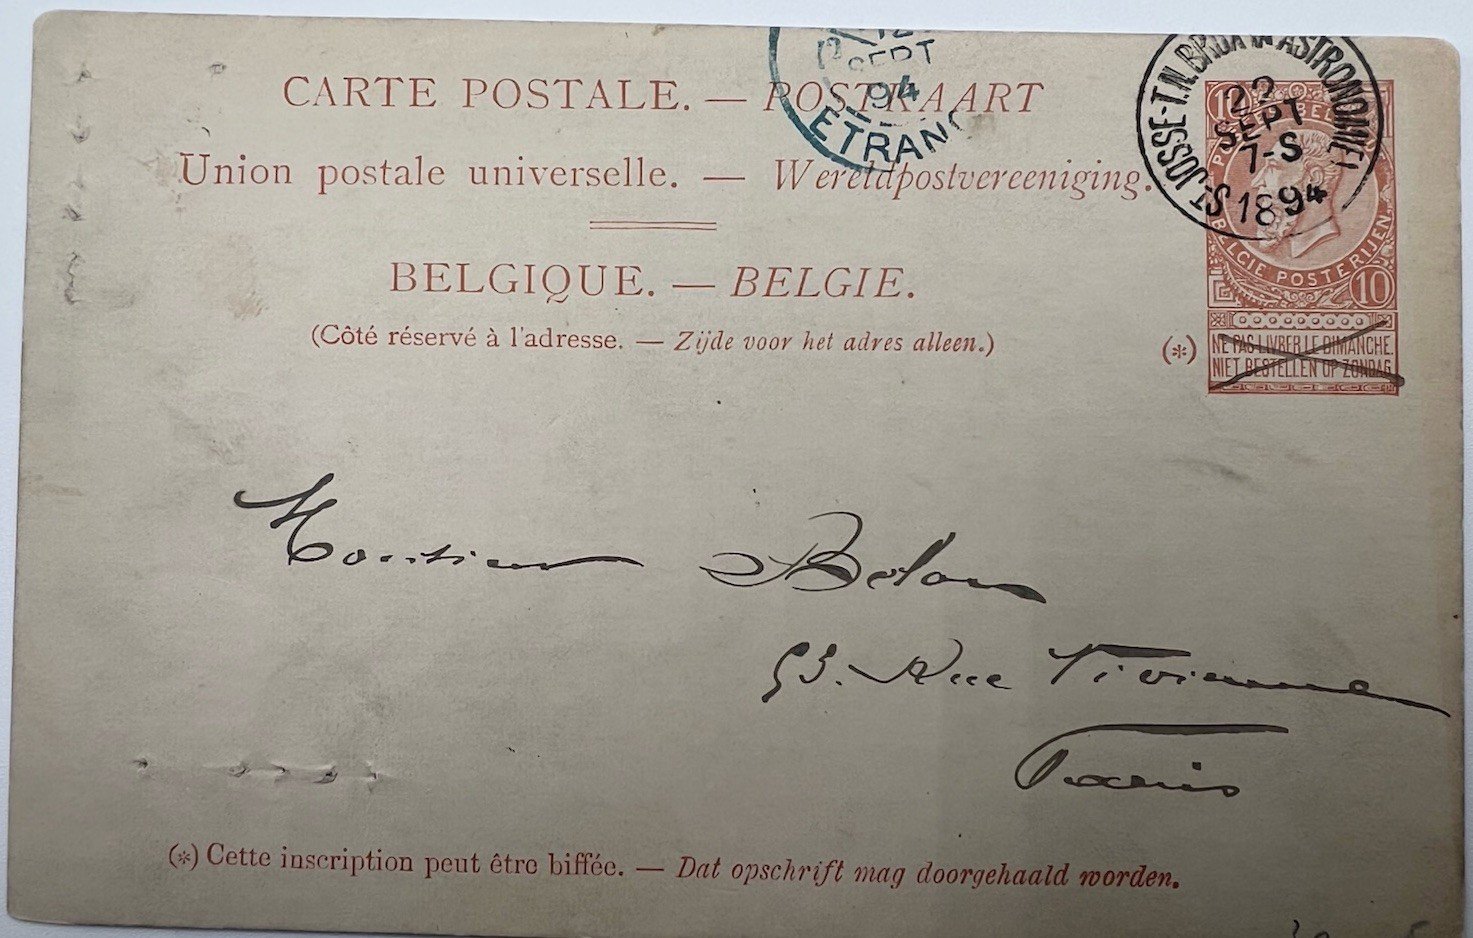 CARTE POSTALE. — POSTKAART
Union postale universelle. — Wereldpostvereeniging.
BELGIQUE. — BELGIE.
(Côté réservé à l'adresse. — Zijde voor het adres alleen.)
SEPT
94
ETRANG
ST JOSSE-T.N. BRUX (R ASTRONOMIE)
22
SEPT
7-S
1894
10
BELGIE POSTERIJEN
10
(*)
NE PAS LIVRER LE DIMANCHE.
NIET BESTELLEN OP ZONDAG
Monsieur Belon
53. Rue Vivienne
Paris
(*) Cette inscription peut être biffée. — Dat opschrift mag doorgehaald worden.